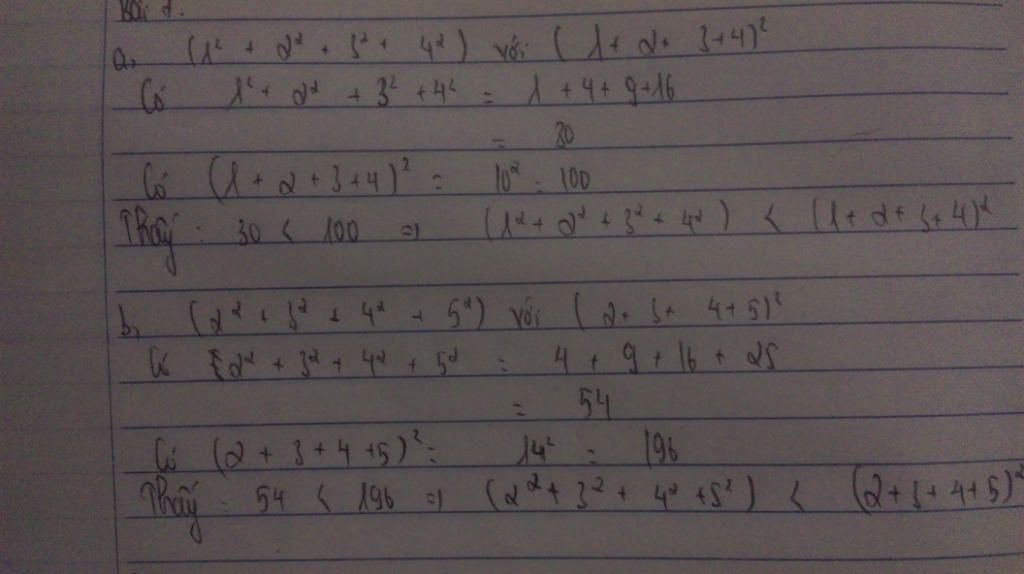 Bài 2.
a, (1² + 2² + 3² + 4²) với (1 + 2 + 3+4)²
Có 1² + 2² + 3² + 4² = 1 + 4 + 9 + 16
= 30
Có (1 + 2 + 3 + 4)² = 10² = 100
Thấy : 30 < 100 => (1² + 2² + 3² + 4²) < (1 + 2 + 3 + 4)²
b, (2² + 3² + 4² + 5²) với (2 + 3 + 4 + 5)²
Có 2² + 3² + 4² + 5² = 4 + 9 + 16 + 25
= 54
Có (2 + 3 + 4 + 5)² = 14² = 196
Thấy : 54 < 196 => (2² + 3² + 4² + 5²) < (2 + 3 + 4 + 5)²